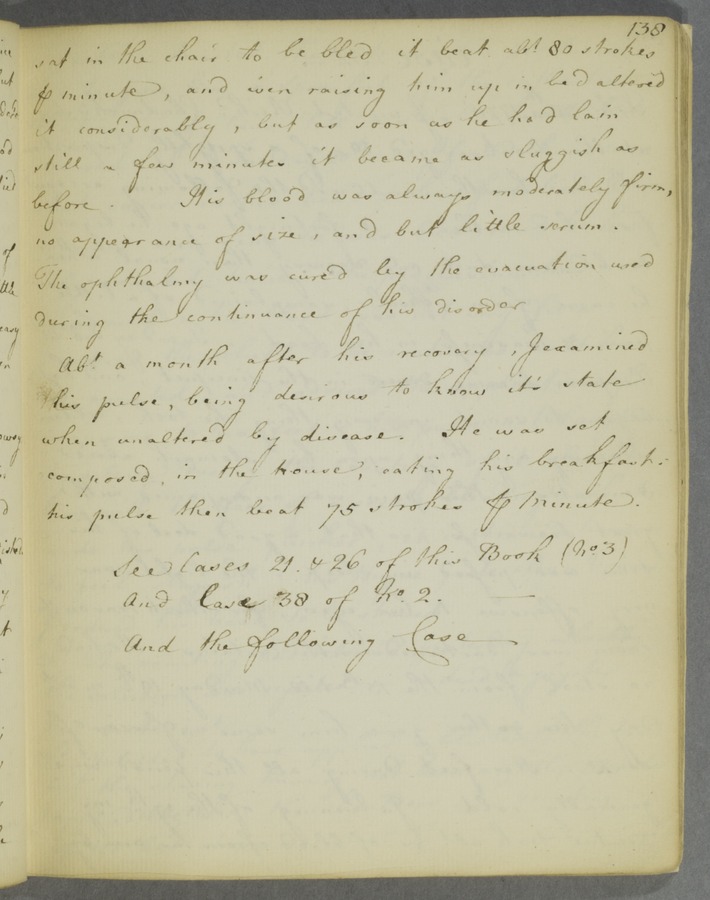 138
sat in the chair to be bled it beat abt 80 strokes
⅌ minute, and even raising him up in bed altered
it considerably, but as soon as he had lain
still a few minutes it became as sluggish as
before. His blood was always moderately firm,
no appearance of size, and but little serum.
The ophthalmy was cured by the evacuation used
during the continuance of his disorder
Abt a month after his recovery, I examined
his pulse, being desirous to know it's state
when unaltered by disease. He was set
composed, in the house, eating his breakfast:
his pulse then beat 75 strokes ⅌ minute.
See Cases 21. & 26 of this Book (No 3)
And Case 38 of No. 2. —
And the following Case